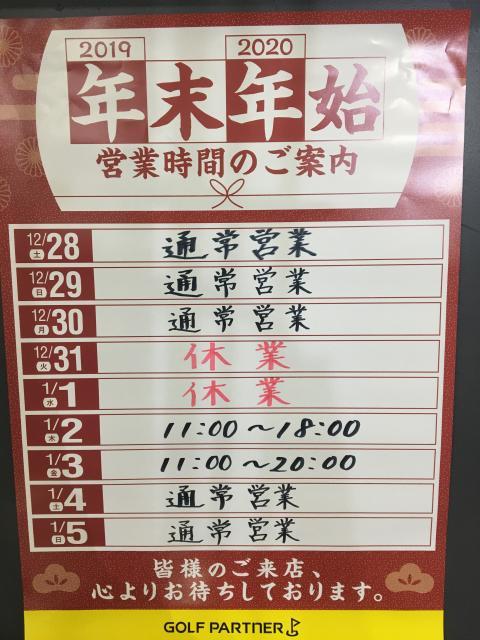 2019 2020
年末年始
営業時間のご案内
12/28 土 通常営業
12/29 日 通常営業
12/30 月 通常営業
12/31 火 休業
1/1 水 休業
1/2 木 11:00〜18:00
1/3 金 11:00〜20:00
1/4 土 通常営業
1/5 日 通常営業
皆様のご来店、
心よりお待ちしております。
GOLF PARTNER